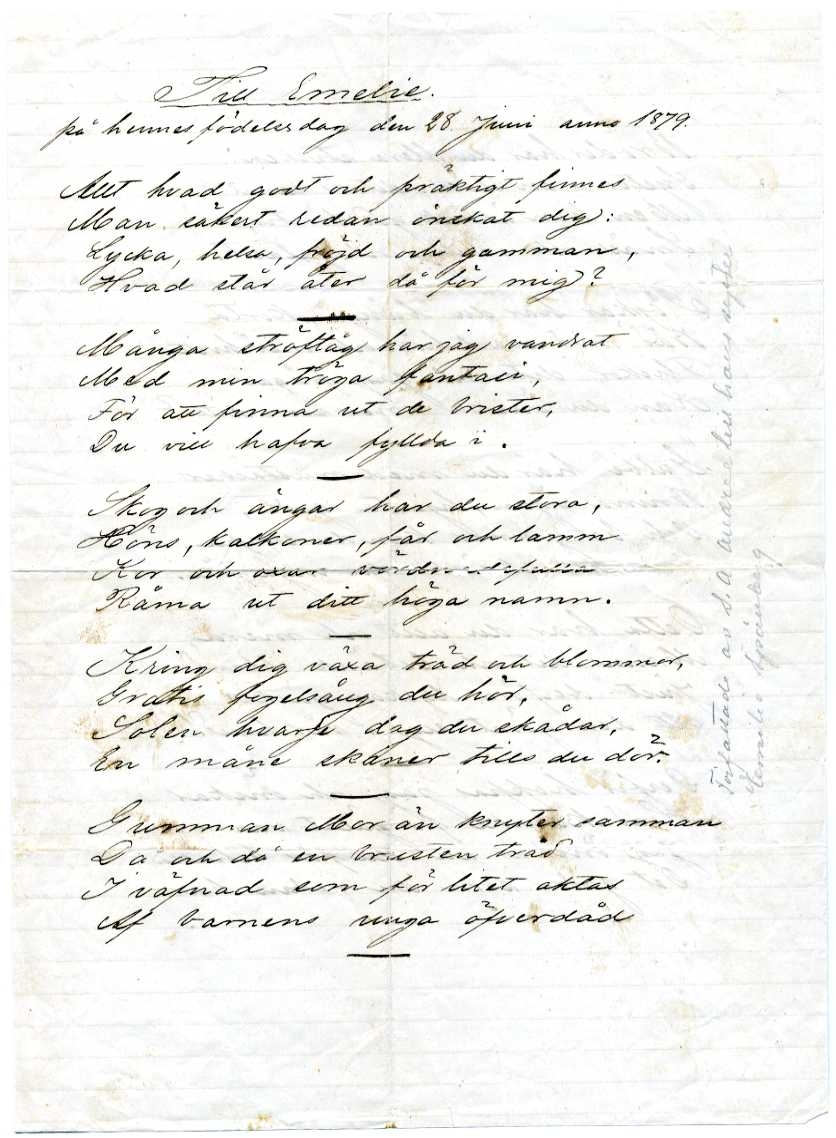 Till Emelie.
på hennes födelsedag den 28 Juni anno 1879.
Allt hvad godt och präktigt finnes
Man säkert redan önskat dig:
Lycka, helsa, fröjd och gamman,
Hvad står åter då för mig?
Många ströftåg har jag vandrat
Med min tröga fantasi,
För att finna ut de brister,
Du vill hafva fyllda i.
Skog och ängar har du stora,
Höns, kalkoner, får och lamm
Kor och oxar vördnadsfulla
Råma ut ditt höga namn.
Kring dig växa träd och blommor,
Gratis fogelsång du hör,
Solen hvarje dag du skådar,
En måne skiner tills du dör.
Gumman Mor än knyter samman
Då och då en brusten tråd
I väfnad som för litet aktas
Af barnens unga öfverdåd
Författade av S.A. Andrée till hans syster
Emilie Spånberg